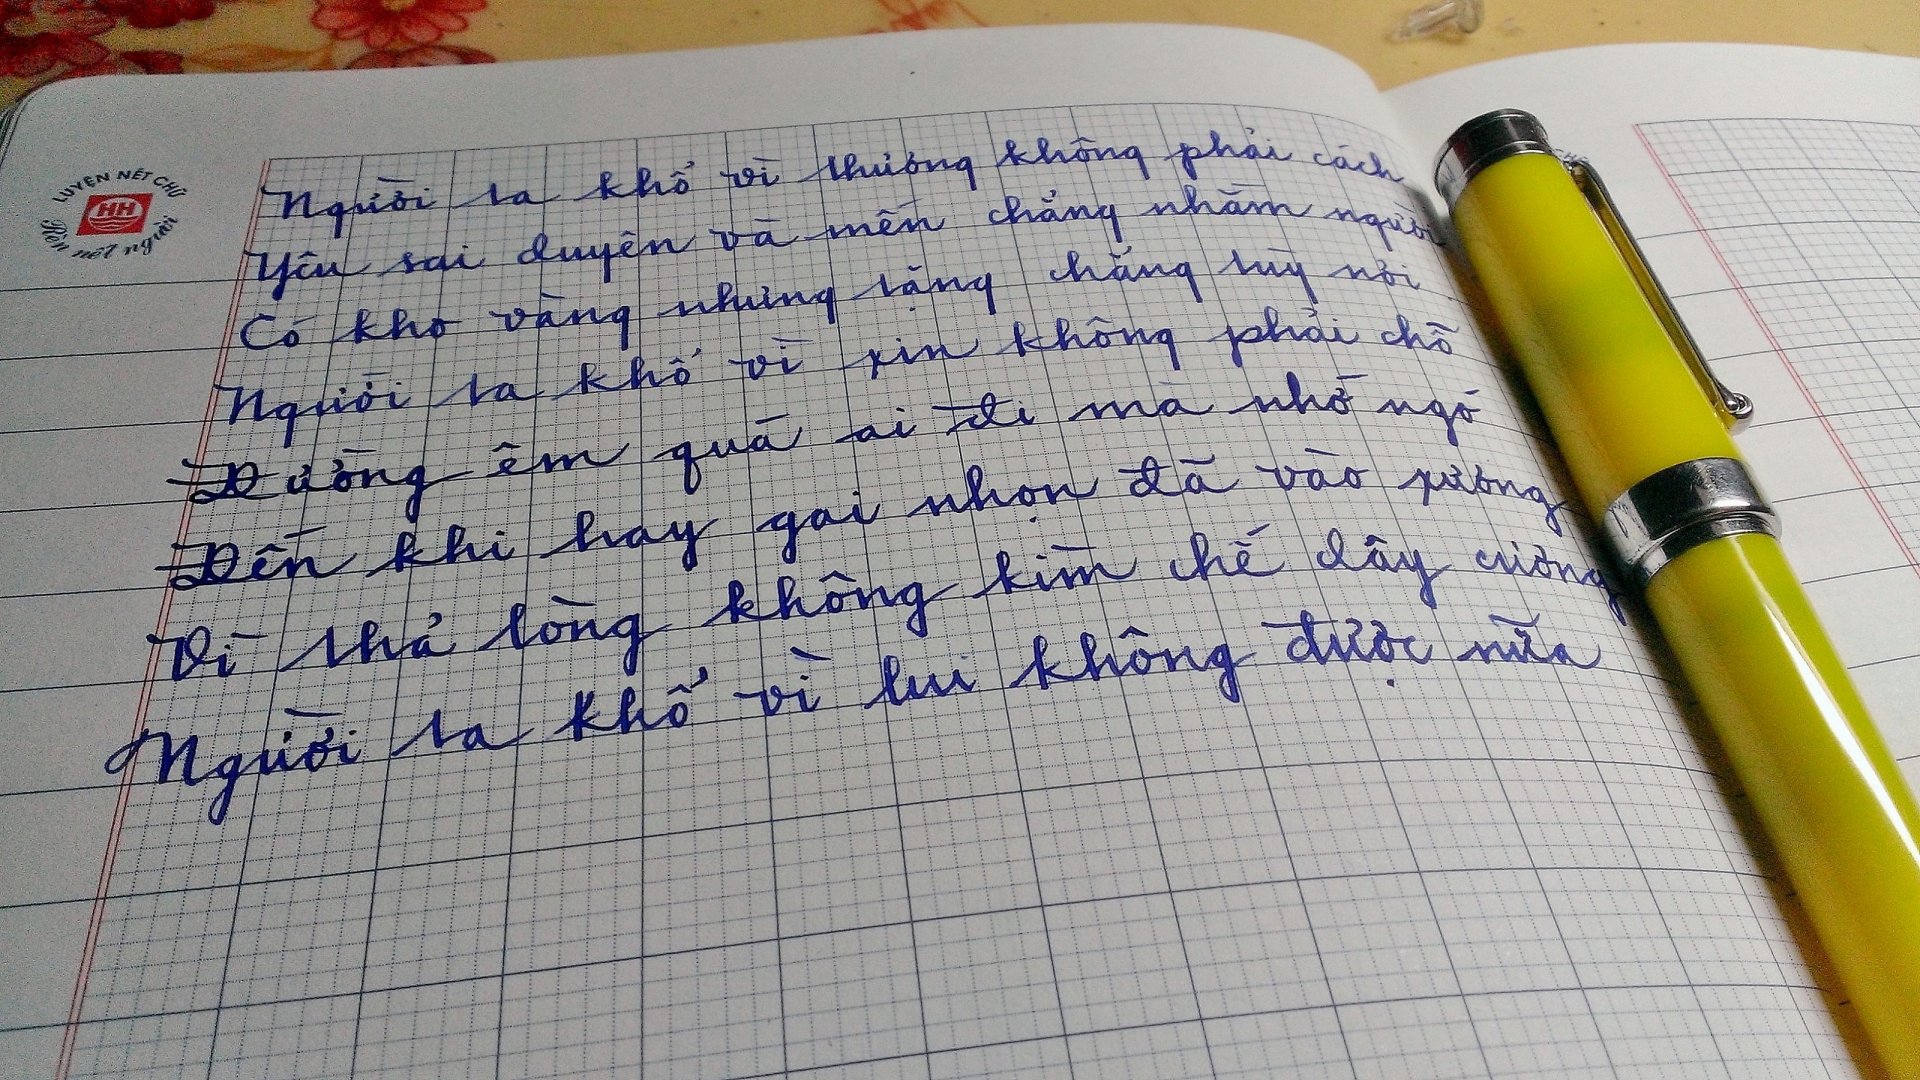 LUYỆN NÉT CHỮ
HH
Rèn nết người
Người ta khổ vì thương không phải cách
Yêu sai duyên và mến chẳng nhằm người
Có kho vàng nhưng tặng chẳng tùy nơi
Người ta khổ vì xin không phải chỗ
Đường êm quá ai đi mà nhớ ngó
Đến khi hay gai nhọn đã vào xương
Vì thả lòng không kìm chế dây cương
Người ta khổ vì lui không được nữa